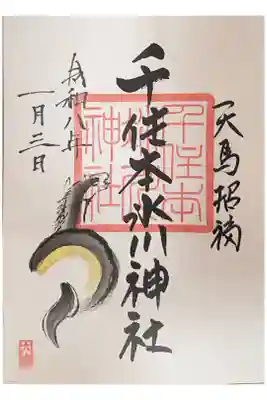 天馬招福
千住本氷川神社
千住本
神社
令和八年
一月三日